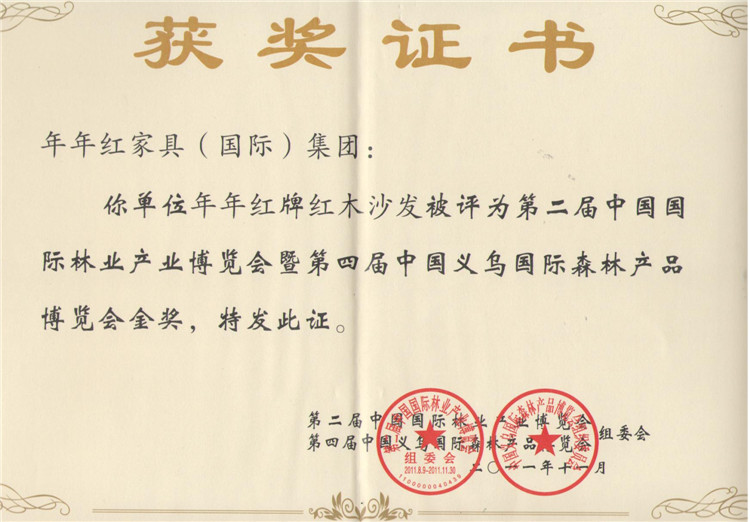 获奖证书
年年红家具（国际）集团：
你单位年年红牌红木沙发被评为第二届中国国
际林业产业博览会暨第四届中国义乌国际森林产品
博览会金奖，特发此证。
第二届中国国际林业产业博览会
第四届中国义乌国际森林产品博览会
组委会
二〇一一年十一月
组委会
2011.8.9-2011.11.30